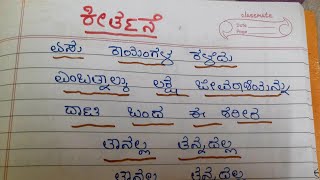 ಕೀರ್ತನೆ
classmate
Date
Page
ಏಸು ಕಾಯಂಗಳ ಕಳೆದು
ಎಂಬತ್ನಾಲ್ಕು ಲಕ್ಷ ಜೀವರಾಶಿಯನ್ನು
ದಾಟಿ ಬಂದ ಈ ಶರೀರ
ತಾನಲ್ಲ ತನ್ನದಲ್ಲ
ತಾನಲ್ಲ ತನ್ನದಲ್ಲ